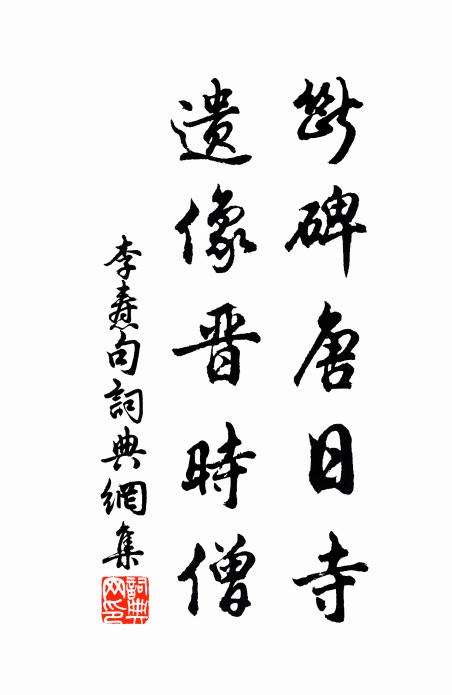 斷碑唐日寺
遺像晋時僧
李燾句詞典網集
詞典网印